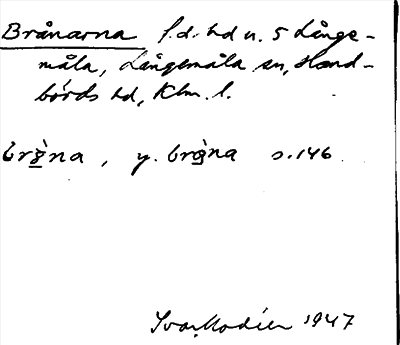 Brånarna f.d. hd u. 5 Långe-
måla, Långemåla sn, Hand-
börds hd, Klm. l.
brå̀na, y. brå̀na s. 146
Ivar Modéer 1947